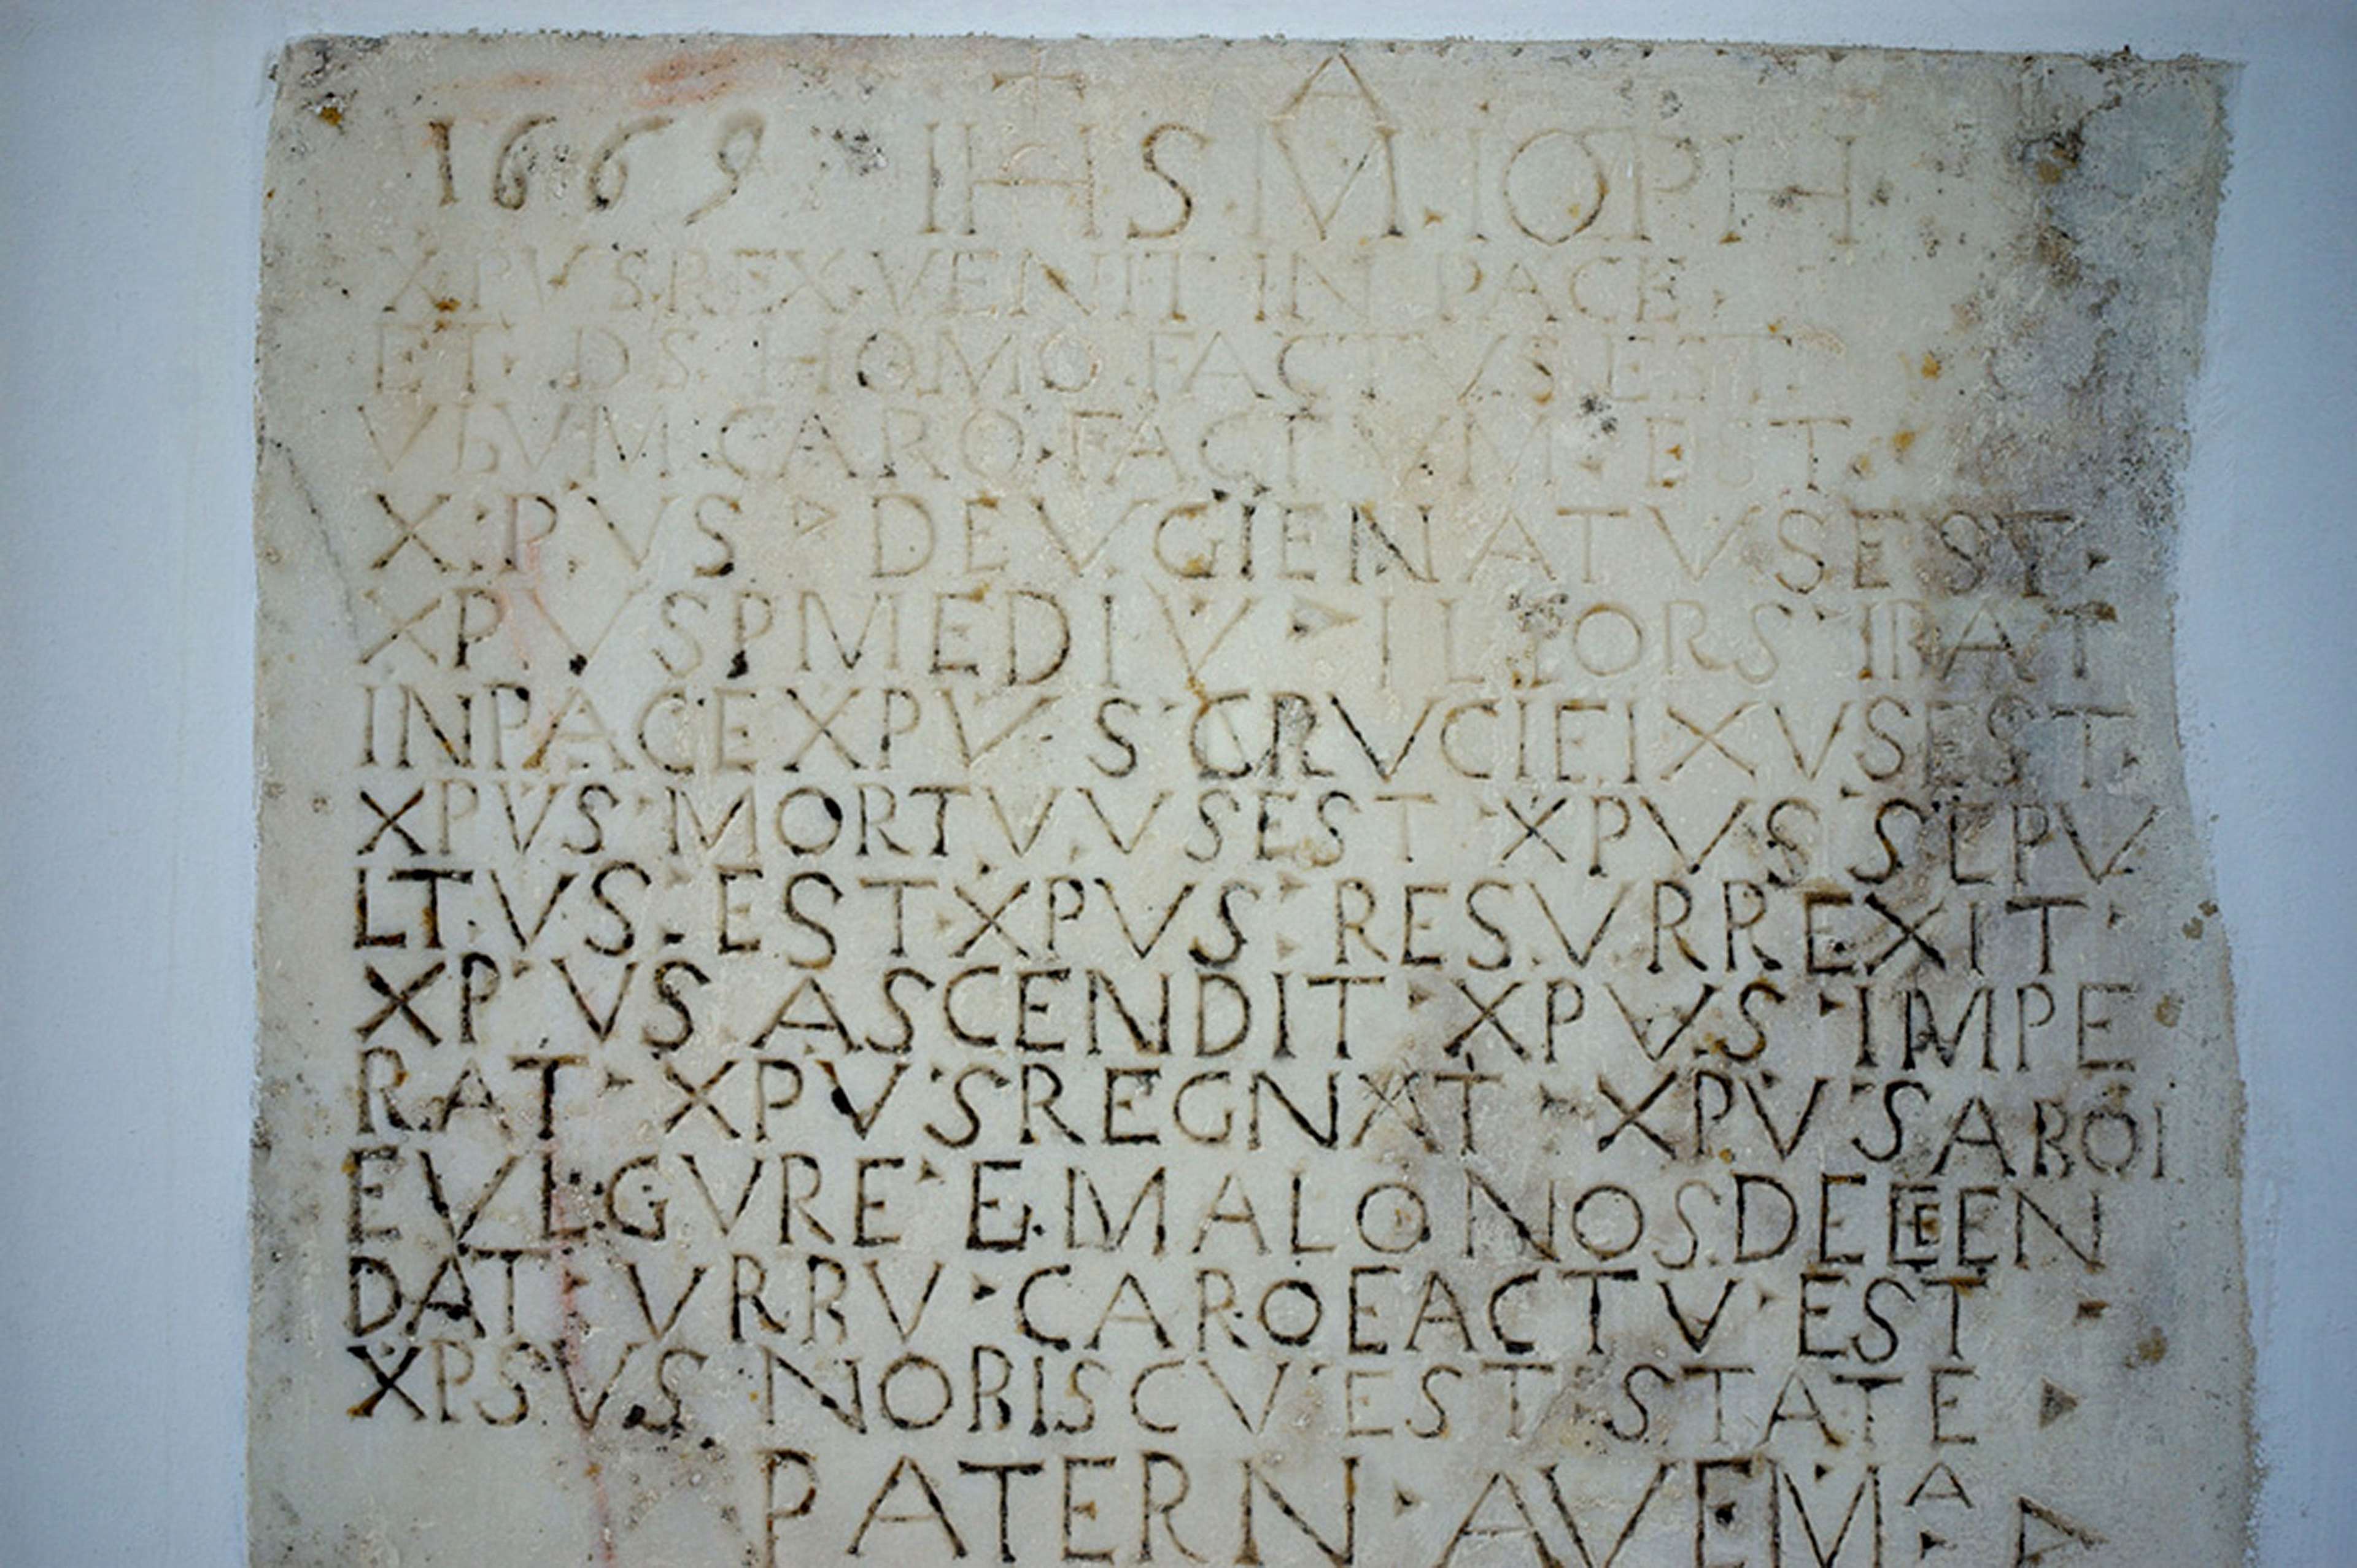 1669 IHS MA IOPH
XPVS REX VENIT IN PACE
ET DS HOMO FACTVS EST
VBVM CARO FACTVM EST
X·PVS DE V GIE NATVS EST
XPVS P MEDIV ILLORS IBAT
IN PACE XPVS CRVCIEIXVS EST
XPVS MORTVVS EST XPVS SEPV
LTVS EST XPVS RESVRREXIT
XPVS ASCENDIT XPVS IMPE
RAT XPVS REGNAT XPVS AB OI
EVLGVRE E MALO NOS DEEEN
DAT VRBV CARO EACTV EST
XPSVS NOBISCV EST STATE
PATER N AVE MA